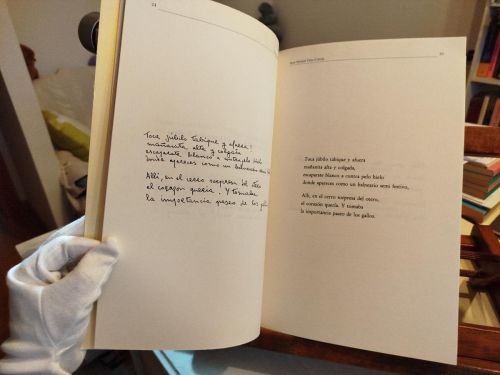 Toca júbilo tabique y afuera
mañanita alta y colgada
escaparate blanco a contrapelo hielo
donde apareces como un balneario
Allí, en el cerro sorpresa del otero
el corazón quería. Y tomaba
la importancia paseo de los
Manuel
Toca júbilo tabique y afuera
mañanita alta y colgada,
escaparate blanco a contra pelo hielo
donde apareces como un balneario semi festivo,
Allí, en el cerro sorpresa del otero,
el corazón quería. Y tomaba
la importancia paseo de los gallos.